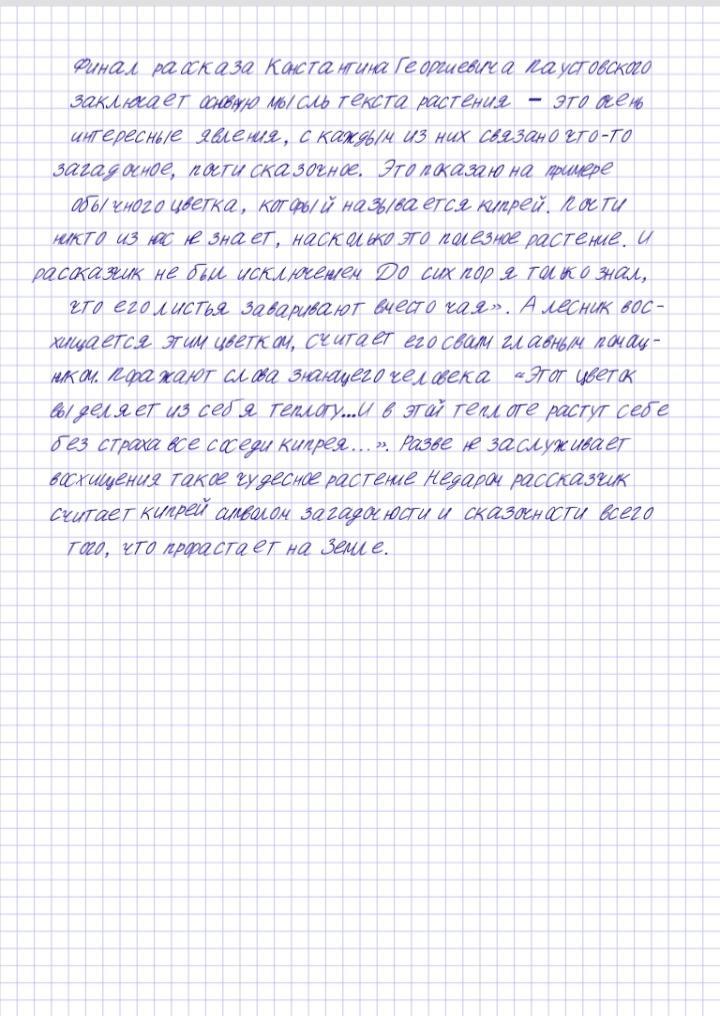 Финал рассказа Константина Георгиевича Паустовского
заключает основную мысль текста растения – это очень
интересные явления, с каждым из них связано что-то
загадочное, почти сказочное. Это показаю на примере
обычного цветка, который называется кипрей. Почти
никто из нас не знает, насколько это полезное растение. И
рассказчик не был исключением До сих пор я только знал,
что его листья заваривают вместо чая». А лесник вос-
хищается этим цветком, считает его свам главным помощ-
ником. Поражают слова знающего человека «Этот цветок
выделяет из себя теплоту...И в этой теплоте растут себе
без страха все соседи кипрея...». Разве не заслуживает
восхищения такое чудесное растение Недаром рассказчик
считает кипрей символом загадочности и сказочности всего
того, что прорастает на Земле.